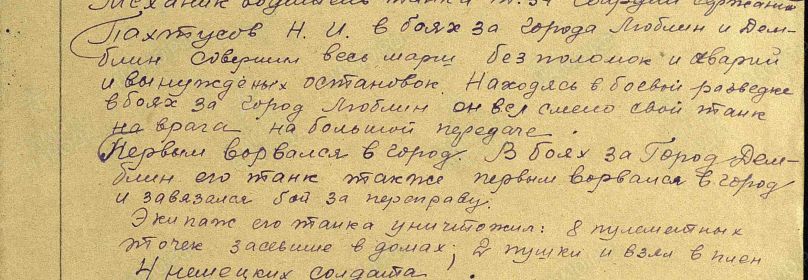 Механик водитель танка Т-34 Гвардии Сержант
Пахтусов Н. И. в боях за города Люблин и Дем-
блин совершил весь марш без поломок и аварий
и вынужденых остановок. Находясь в боевой разведке
в боях за город Люблин он вел смело свой танк
на врага на большой передаче.
Первым ворвался в город. В боях за Город Дем-
блин его танк также первым ворвался в город
и завязался бой за переправу.
Экипаж его танка уничтожил: 8 пулеметных
точек засевшие в домах; 2 пушки и взял в плен
4 немецких солдата.